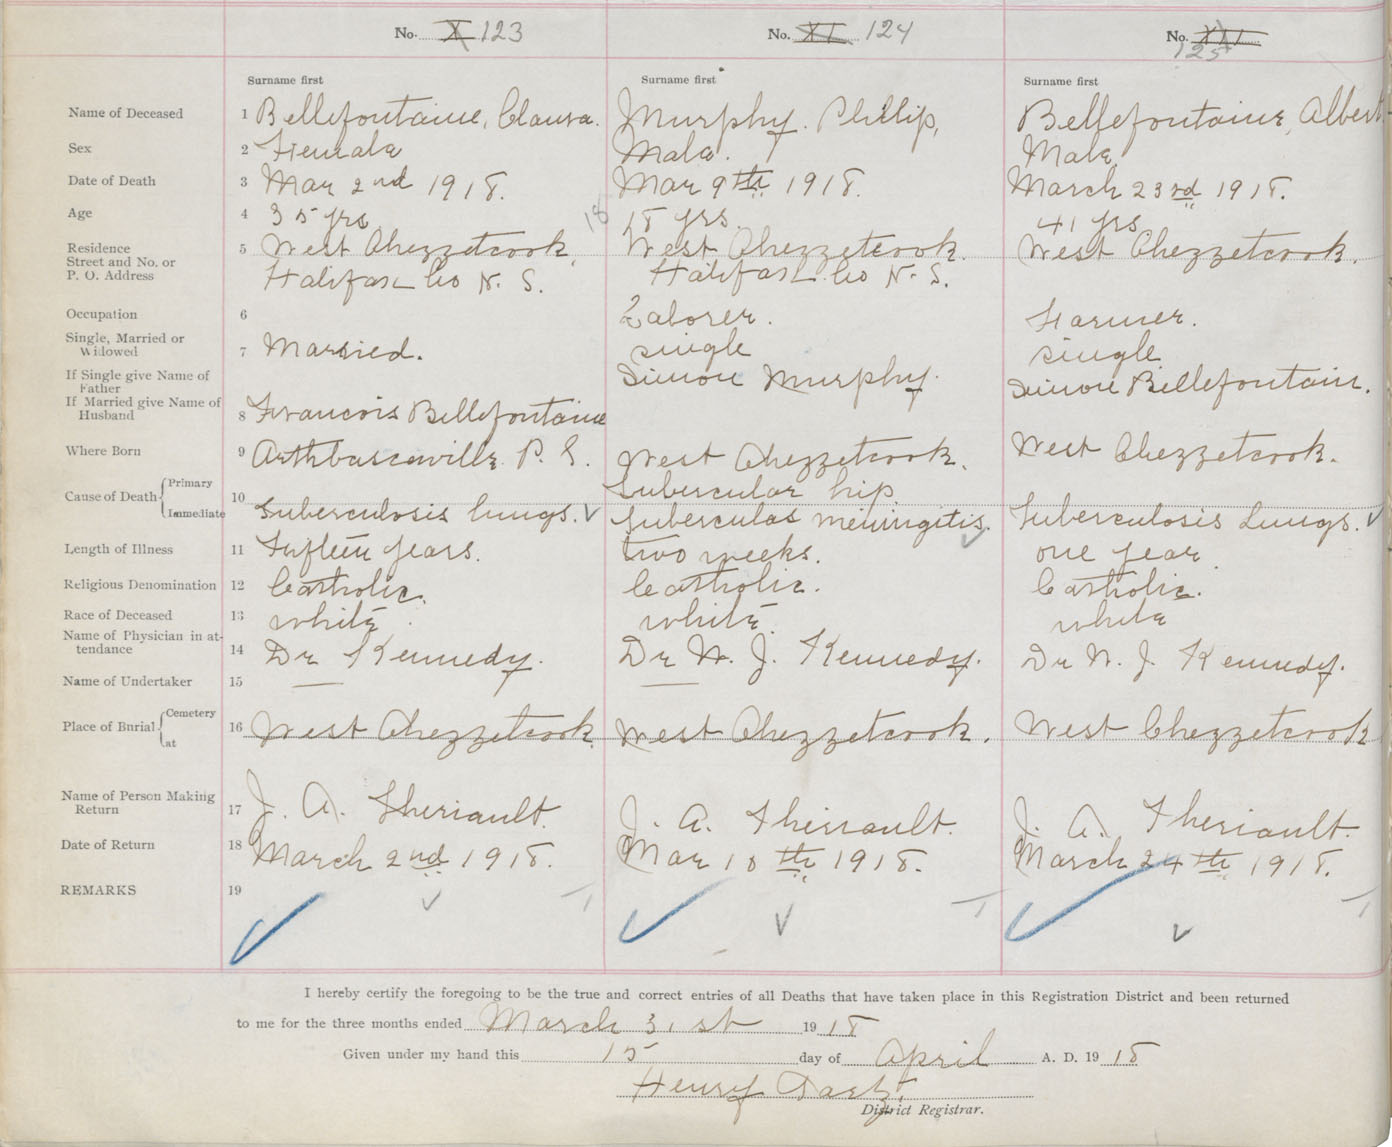 No. X 123 No. XI 124 No. XII 125
Surname first Surname first Surname first
Name of Deceased 1 Bellefontaine, Claura. Murphy. Phillip, Bellefontaine, Albert.
Sex 2 Female Male. Male,
Date of Death 3 Mar 2nd 1918. Mar 9th 1918. March 23rd 1918.
Age 4 35 yrs 18 18 yrs. 41 yrs
Residence 5 West Chezzetcook, West Chezzetcook. West Chezzetcook.
Street and No. or
P. O. Address Halifax Co N. S. Halifax Co N. S.
Occupation 6 Laborer. Farmer.
Single, Married or
Widowed 7 Married. single single
If Single give Name of
Father Simon Murphy. Simon Bellefontain.
If Married give Name of
Husband 8 Francois Bellefontaine
Where Born 9 Arthbascaville P. Q. West Chezzetcook. West Chezzetcook.
Cause of Death Primary 10 Tubercular hip
Immediate Tuberculosis lungs. Tubercular meningitis. Tuberculosis Lungs.
Length of Illness 11 Fifteen years. two weeks. one year
Religious Denomination 12 Catholic. Catholic. Catholic.
Race of Deceased 13 white. white. white
Name of Physician in at-
tendance 14 Dr Kennedy. Dr W. J. Kennedy. Dr W. J. Kennedy.
Name of Undertaker 15 — —
Place of Burial Cemetery 16 West Chezzetcook. West Chezzetcook. West Chezzetcook
at
Name of Person Making
Return 17 J. A. Theriault. J. A. Theriault. J. A. Theriault.
Date of Return 18 March 2nd 1918. Mar 10th 1918. March 24th 1918.
REMARKS 19
I hereby certify the foregoing to be the true and correct entries of all Deaths that have taken place in this Registration District and been returned
to me for the three months ended March 31st 19 18
Given under my hand this 15 day of April A. D. 19 18
Henry
District Registrar.